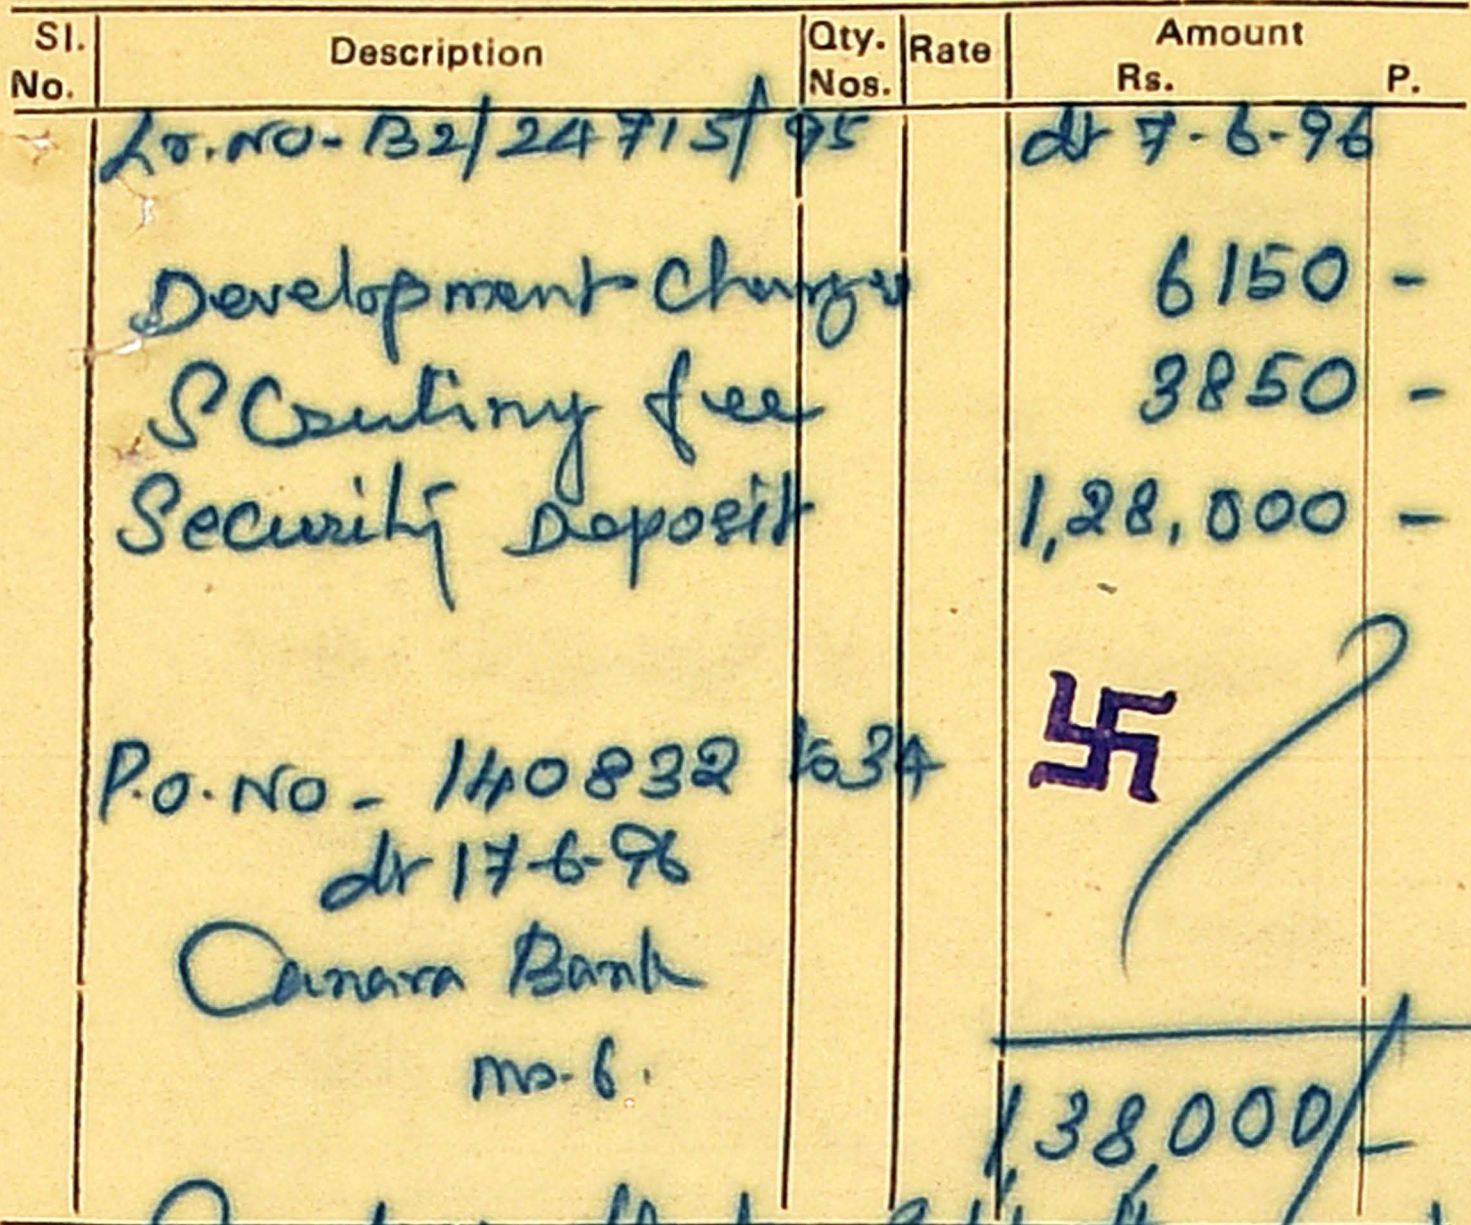 Sl. No. Description Qty. Nos. Rate Amount Rs. P.
Lr. NO - B2/24715/95 dt 7-6-96
Development Charges 6150 -
SCrutiny fee 3850 -
Security Deposit 1,28,000 -
P.O. NO - 140832 to 34
dt 17-6-96
Canara Bank
ms-6.
1,38,000/-